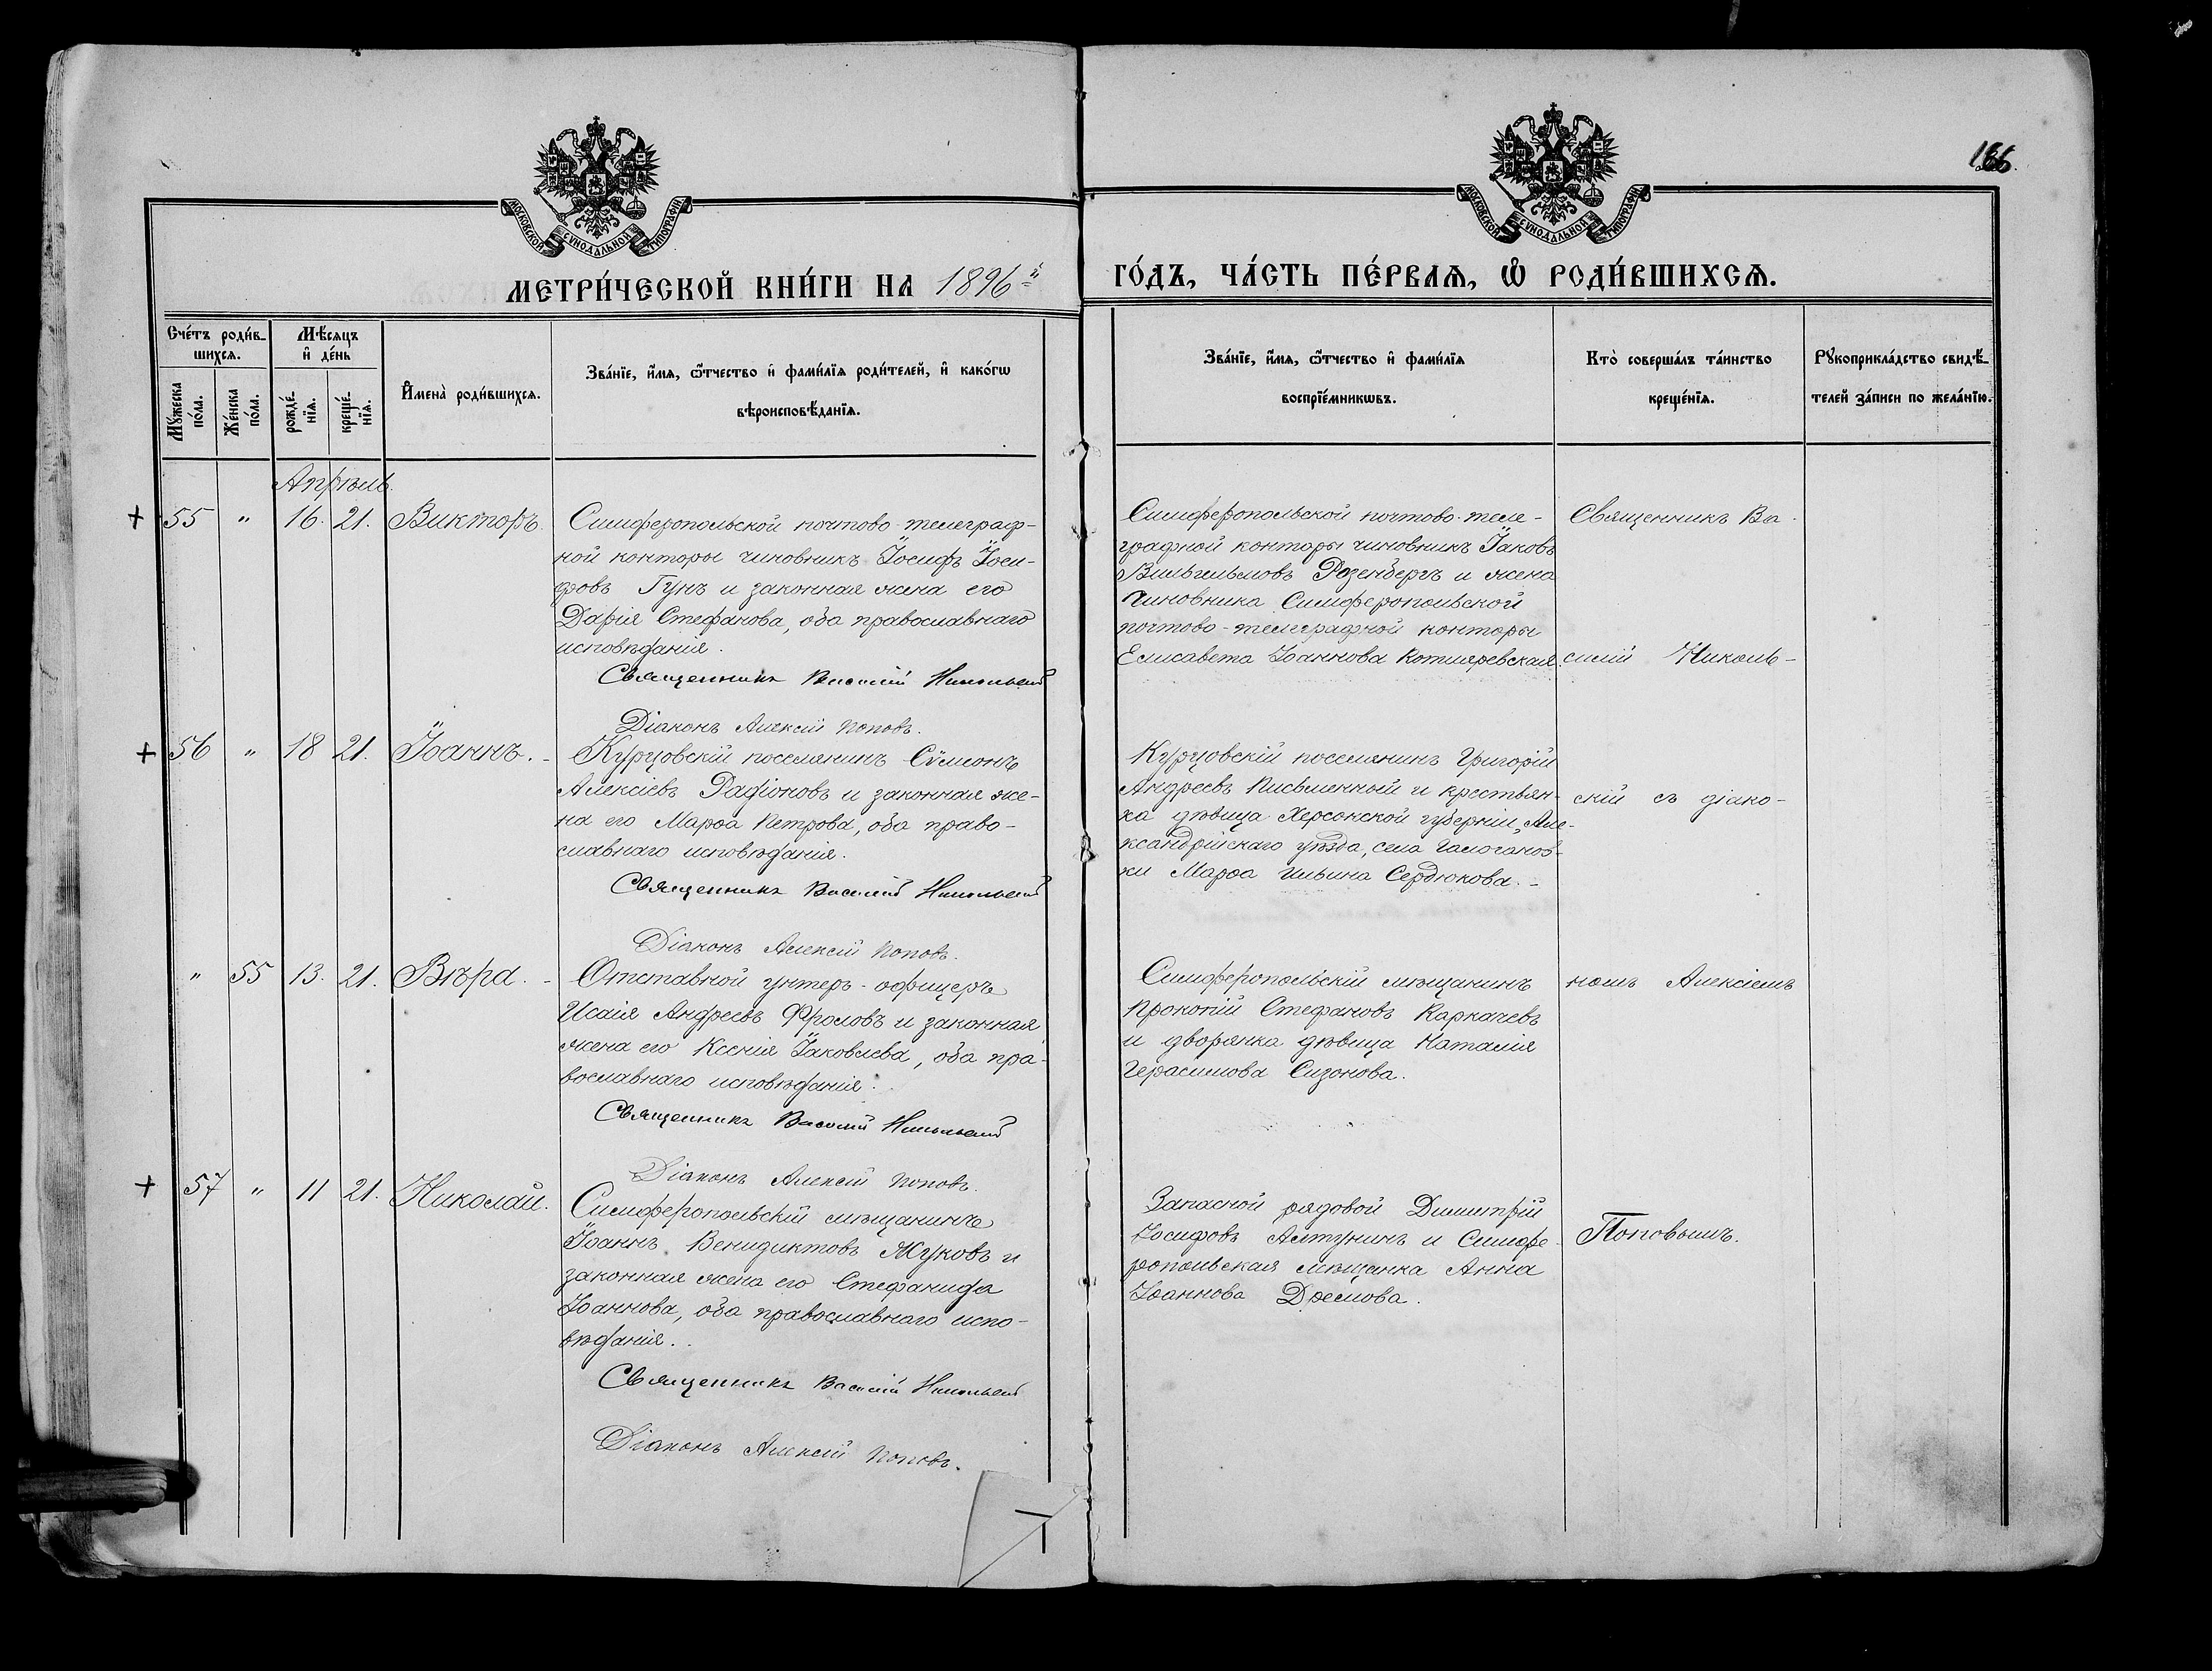 166.
МОСКОВСКОЙ СѴНОДАЛЬНОЙ ТИПОГРАФІИ
МОСКОВСКОЙ СѴНОДАЛЬНОЙ ТИПОГРАФІИ
МЕТРИ́ЧЕСКОЙ КНИ́ГИ НА 1896й
ГО́ДЪ, ЧА́СТЬ ПЕ́РВАѦ, Ѡ҆ РОДИ́ВШИХСѦ.
Сче́тъ роди́в-
шихсѧ.
Мꙋ́жеска
по́ла.
Же́нска
по́ла.
Мѣ́сѧцъ
и҆ де́нь
рожде́-
нїѧ.
креще́-
нїѧ.
И҆мена̀ роди́вшихсѧ.
Зва́нїе, и҆́мѧ, ѻ҆́тчество и҆ фами́лїѧ роди́телей, и҆ како́гѡ
вѣроисповѣ́данїѧ.
Зва́нїе, и҆́мѧ, ѻ҆́тчество и҆ фами́лїѧ
воспрїе́мникѡвъ.
Кто̀ соверша́лъ та́инство
креще́нїѧ.
Рꙋкоприкла́дство свидѣ́-
телей за́писи по жела́нїю.
Апрѣль.
+ 55 " 16. 21. Викторъ.
Симферопольской почтово-телеграф-
ной конторы чиновникъ Іосифъ Іоси-
фовъ Гунъ и законная жена его
Дарія Стефанова, оба православнаго
исповѣданія.
Священникъ Василій Никольскій
Діаконъ Алексій Поповъ.
Симферопольской почтово-теле-
графной конторы чиновникъ Іаковъ
Вильгельмовъ Розенбергъ и жена
чиновника Симферопольской
почтово-телеграфной конторы
Елисавета Іоаннова Котляревская.
Священникъ Ва-
силій Николь-
+ 56 " 18 21. Іоаннъ.-
Курцовскій поселянинъ Сѵмеонъ
Алексіевъ Радіоновъ и законная же-
на его Марѳа Петрова, оба право-
славнаго исповѣданія.
Священникъ Василій Никольскій
Діаконъ Алексій Поповъ.
Курцовскій поселянинъ Григорій
Андреевъ Письменный и крестьян-
ка дѣвица Херсонской губерніи, Але-
ксандрійскаго уѣзда, села
ки Марѳа Ильина Сердюкова.-
скій съ діако-
" 55 13. 21. Вѣра.-
Отставной унтеръ-офицеръ
Исаія Андреевъ Фроловъ и законная
жена его Ксенія Іаковлева, оба пра-
вославнаго исповѣданія.
Священникъ Василій Никольскій
Діаконъ Алексій Поповъ.
Симферопольскій мѣщанинъ
Прокопій Стефановъ Каркачевъ
и дворянка дѣвица Наталія
Герасимова Сизонова.
номъ Алексіемъ
+ 57 " 11 21. Николай.
Симферопольскій мѣщанинъ
Іоаннъ Венидиктовъ Жуковъ и
законная жена его Стефанида
Іоаннова, оба православнаго испо-
вѣданія.
Священникъ Василій Никольскій
Діаконъ Алексій Поповъ.
Запасной рядовой Димитрій
Іосифовъ Алтунинъ и Симфе-
ропольская мѣщанка Анна
Іоаннова
Поповымъ.